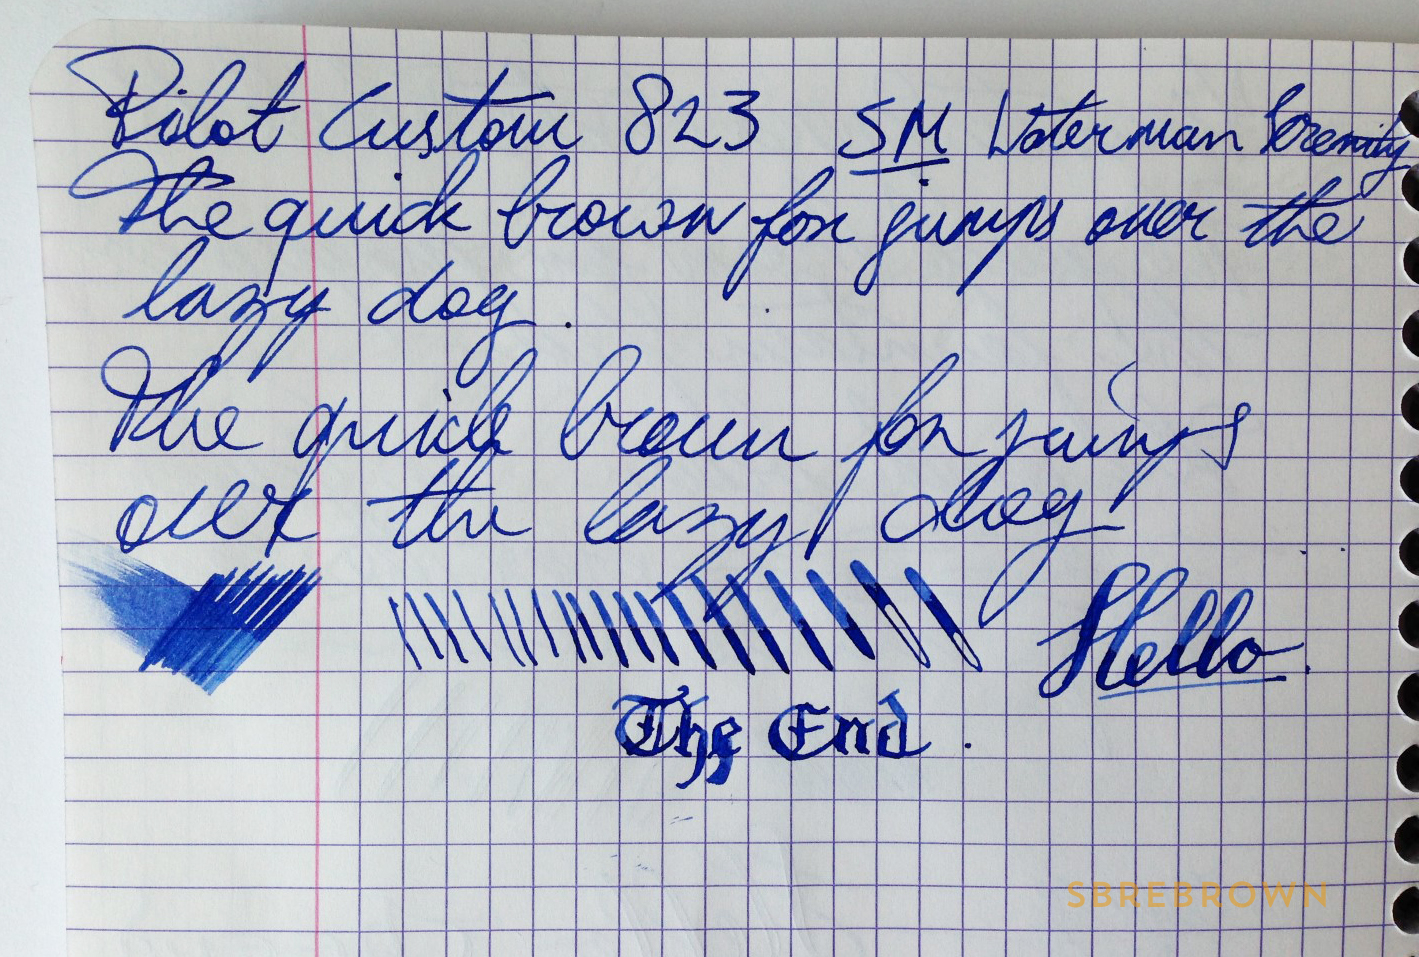 Pilot Custom 823 SM Waterman Serenity
The quick brown fox jumps over the
lazy dog.
The quick brown fox jumps
over the lazy dog!
Hello.
The End.
SBREBROWN